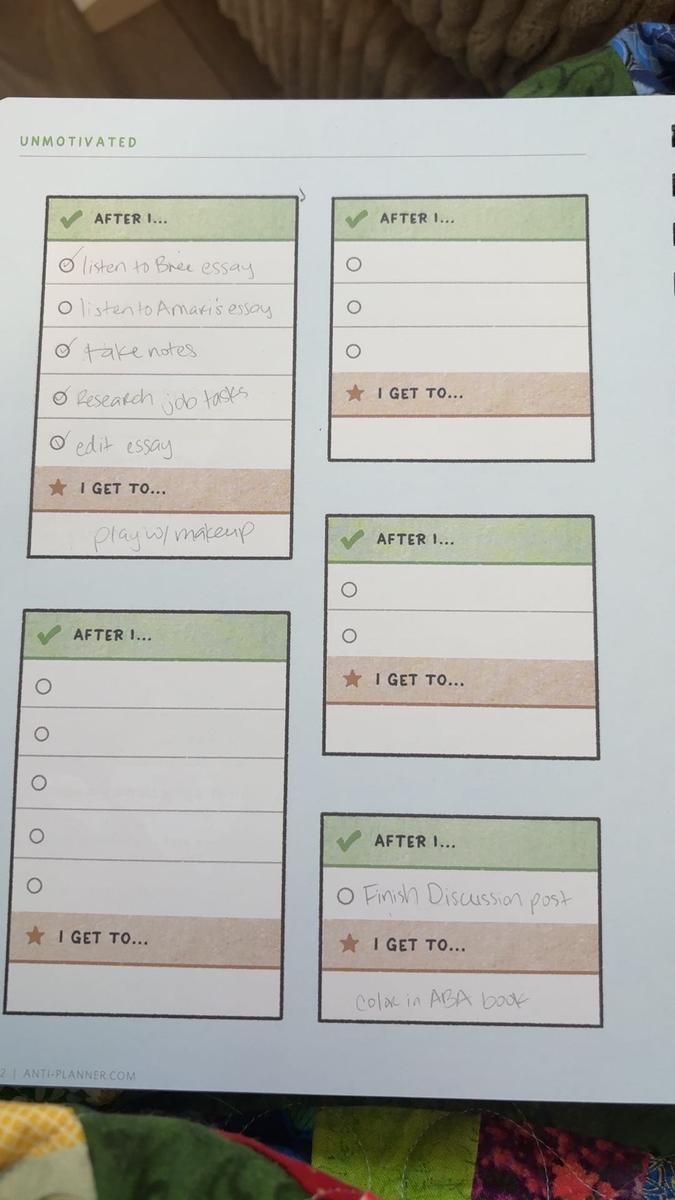 UNMOTIVATED
AFTER I...
listen to Bree essay
listen to Amari's essay
take notes
Research job tasks
edit essay
I GET TO...
play w/ makeup
AFTER I...
I GET TO...
AFTER I...
I GET TO...
AFTER I...
I GET TO...
AFTER I...
Finish Discussion post
I GET TO...
color in ABA book
2 | ANTI-PLANNER.COM